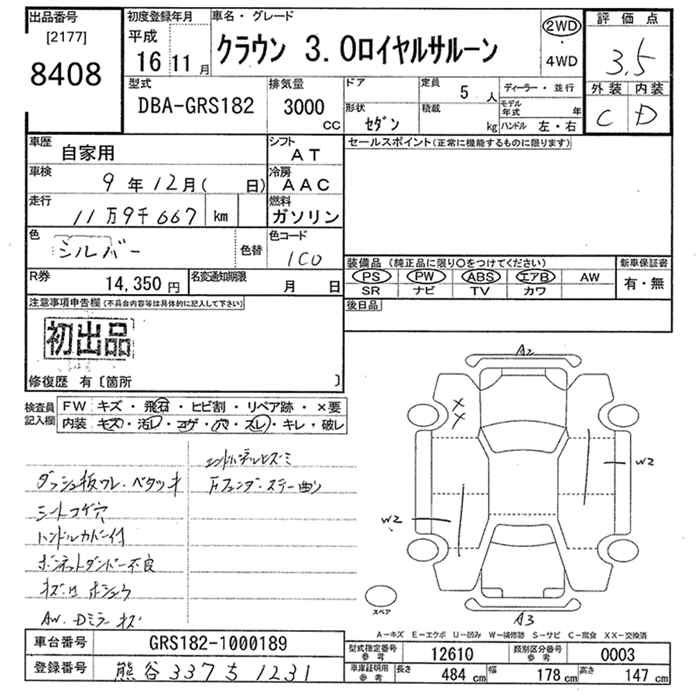 出品番号
[2177]
8408
初度登録年月
平成
16 11月
車名・グレード
クラウン 3.0ロイヤルサルーン
2WD
・
4WD
評価点
3.5
外装 内装
C D
型式
DBA-GRS182
排気量
3000
CC
ドア
形状
セダン
定員
5人
積載
kg
ディーラー・並行
モデル年式 年
ハンドル 左・右
車歴
自家用
シフト
AT
車検
9年12月( 日)
冷房
AAC
走行
11万9千667 km
燃料
ガソリン
色
シルバー
色替
色コード
1C0
R券
14,350円
名変通知期限
月 日
セールスポイント(正常に機能するものに限ります)
装備品(純正品に限り○をつけてください)
PS PW ABS エアB AW
SR ナビ TV カワ
新車保証書
有・無
後日品
注意事項申告欄(不具合内容等は具体的に記入して下さい)
初出品
修復歴 有〔箇所 〕
検査員記入欄
FW キズ・飛石・ヒビ割・リペア跡・×要
内装 キズ・汚レ・コゲ・穴・スレ・キレ・破レ
ダッシュ板ワレ・ベタツキ
シートコゲ穴
ハンドルカバー付
ボンネットダンパー不良
AW. Dミラーキズ
Fフェンダーステー曲リ
A2
W2
W2
A3
スペア
A-キズ E-エクボ U-凹み W-補修跡 S-サビ C-腐食 XX-交換済
車台番号
GRS182-1000189
登録番号
熊谷 337 ち 1231
型式指定番号
参考
12610
類別区分番号
参考
0003
車庫証明用
参考
長さ
484 cm
幅
178 cm
高さ
147 cm